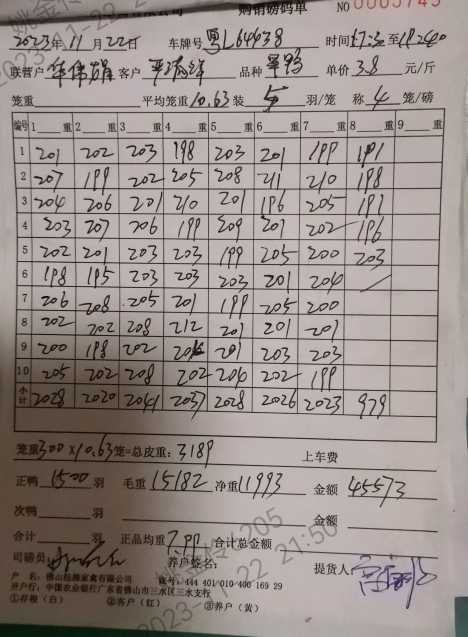 购销磅码单 NO 0005745
2023年11月22日 车牌号 粤L64638 时间17:30至18:40
联营户 客户 品种 单价3.8元/斤
笼重 平均笼重10.63装5羽/笼 称4笼/磅
编号 1 重 2 重 3 重 4 重 5 重 6 重 7 重 8 重 9 重
1 201 202 203 198 203 201 199 191
2 207 199 202 205 208 211 210 198
3 204 206 201 210 201 196 205 191
4 203 207 206 199 209 201 202 196
5 202 201 203 203 199 205 200 203
6 198 195 203 203 203 201 204 /
7 206 208 205 201 199 205 200
8 202 202 208 212 201 201 201
9 200 198 202 204 201 203 203
10 205 202 208 202 204 202 199
小计 2028 2020 2041 2037 2028 2026 2023 979
笼重300×10.63笼=总皮重:3189 上车费
正鸭1500羽 毛重15182 净重11993 金额45573
次鸭 羽 金额
合计 羽 正品均重7.99 合计总金额
司磅员: 养户签名: 提货人:
户 名:佛山 家禽有限公司 账号:444 401 010 400 169 29
开户行:中国农业银行广东省佛山市三水区三水支行
①存根(白) ②客户(红) ③养户(黄)
2023-11-22 21:50